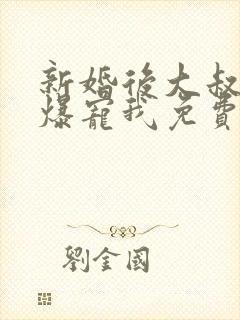 新婚後大叔
爆寵我免費
劉金國